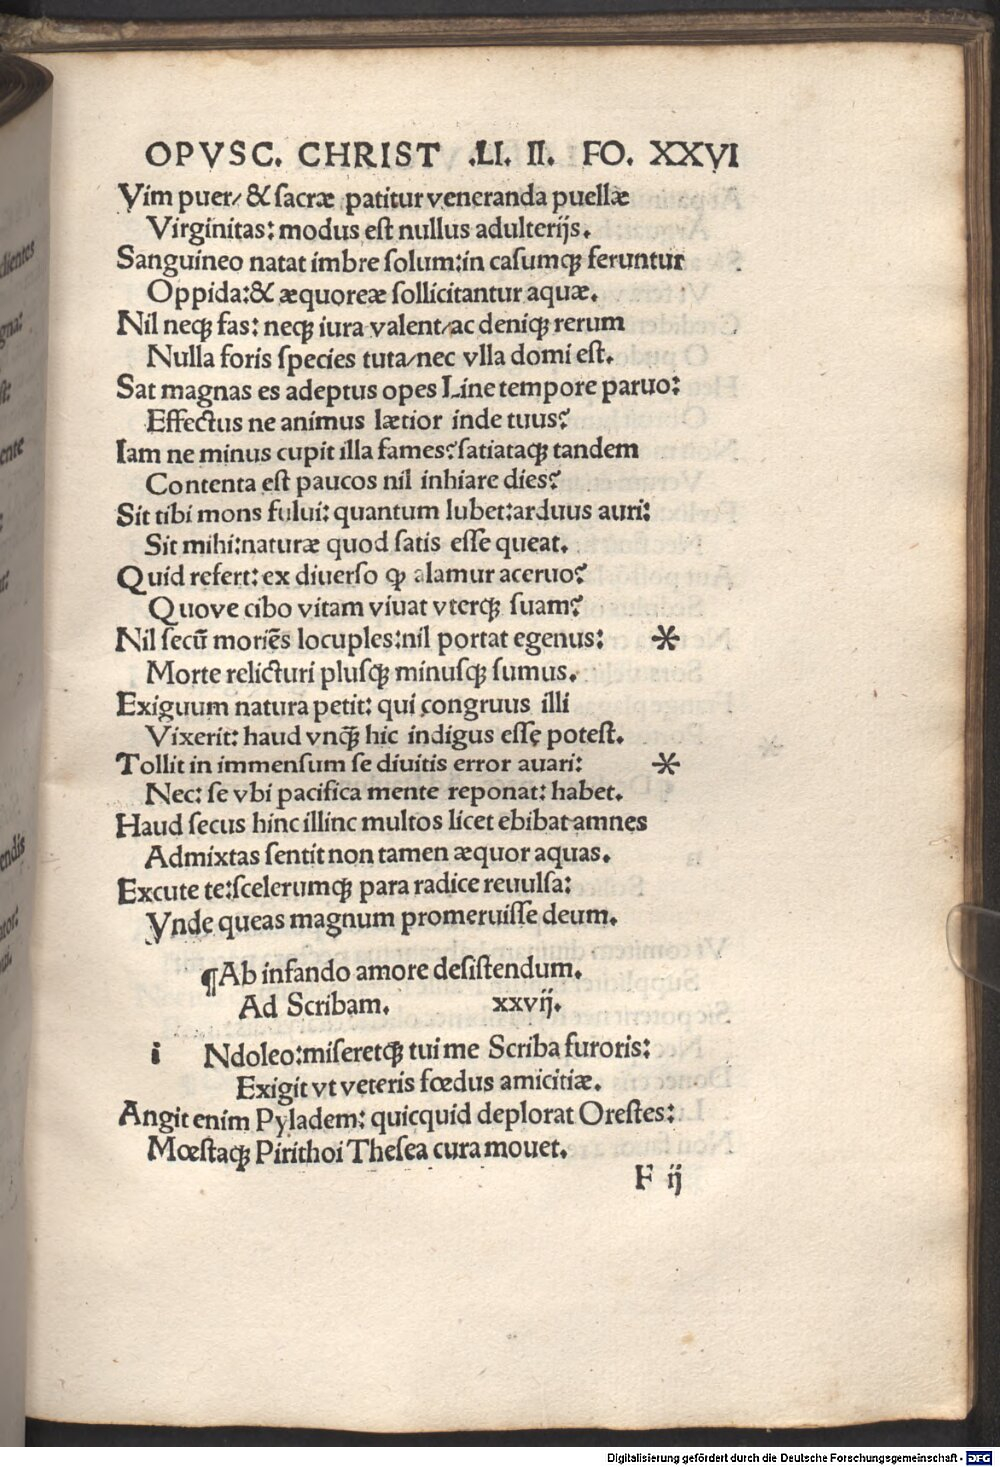 OPVSC. CHRIST .LI. II. FO. XXVI
Vim puer/ & sacræ patitur veneranda puellæ
Virginitas: modus est nullus adulterijs.
Sanguineo natat imbre solum: in casumqꝫ feruntur
Oppida: & æquoreæ sollicitantur aquæ.
Nil neqꝫ fas: neqꝫ iura valent/ ac deniqꝫ rerum
Nulla foris species tuta/ nec vlla domi est.
Sat magnas es adeptus opes Line tempore paruo:
Effectus ne animus lætior inde tuus?
Iam ne minus cupit illa fames? satiataqꝫ tandem
Contenta est paucos nil inhiare dies?
Sit tibi mons fului: quantum lubet: arduus auri:
Sit mihi: naturæ quod satis esse queat.
Quid refert: ex diuerso ꝙ alamur aceruo?
Quove cibo vitam viuat vterqꝫ suam?
Nil secū moriēs locuples: nil portat egenus: *
Morte relicturi plusqꝫ minusqꝫ sumus.
Exiguum natura petit: qui congruus illi
Vixerit: haud vnqꝫ̄ hic indigus esse potest.
Tollit in immensum se diuitis error auari: *
Nec: se vbi pacifica mente reponat: habet.
Haud secus hinc illinc multos licet ebibat amnes
Admixtas sentit non tamen æquor aquas.
Excute te: scelerumqꝫ para radice reuulsa:
Vnde queas magnum promeruisse deum.
¶ Ab infando amore desistendum.
Ad Scribam. xxvij.
i Ndoleo: miseretqꝫ tui me Scriba furoris:
Exigit vt veteris fœdus amicitiæ.
Angit enim Pyladem: quicquid deplorat Orestes:
Mœstaqꝫ Pirithoi Thesea cura mouet.
F ij
Digitalisierung gefördert durch die Deutsche Forschungsgemeinschaft - DFG